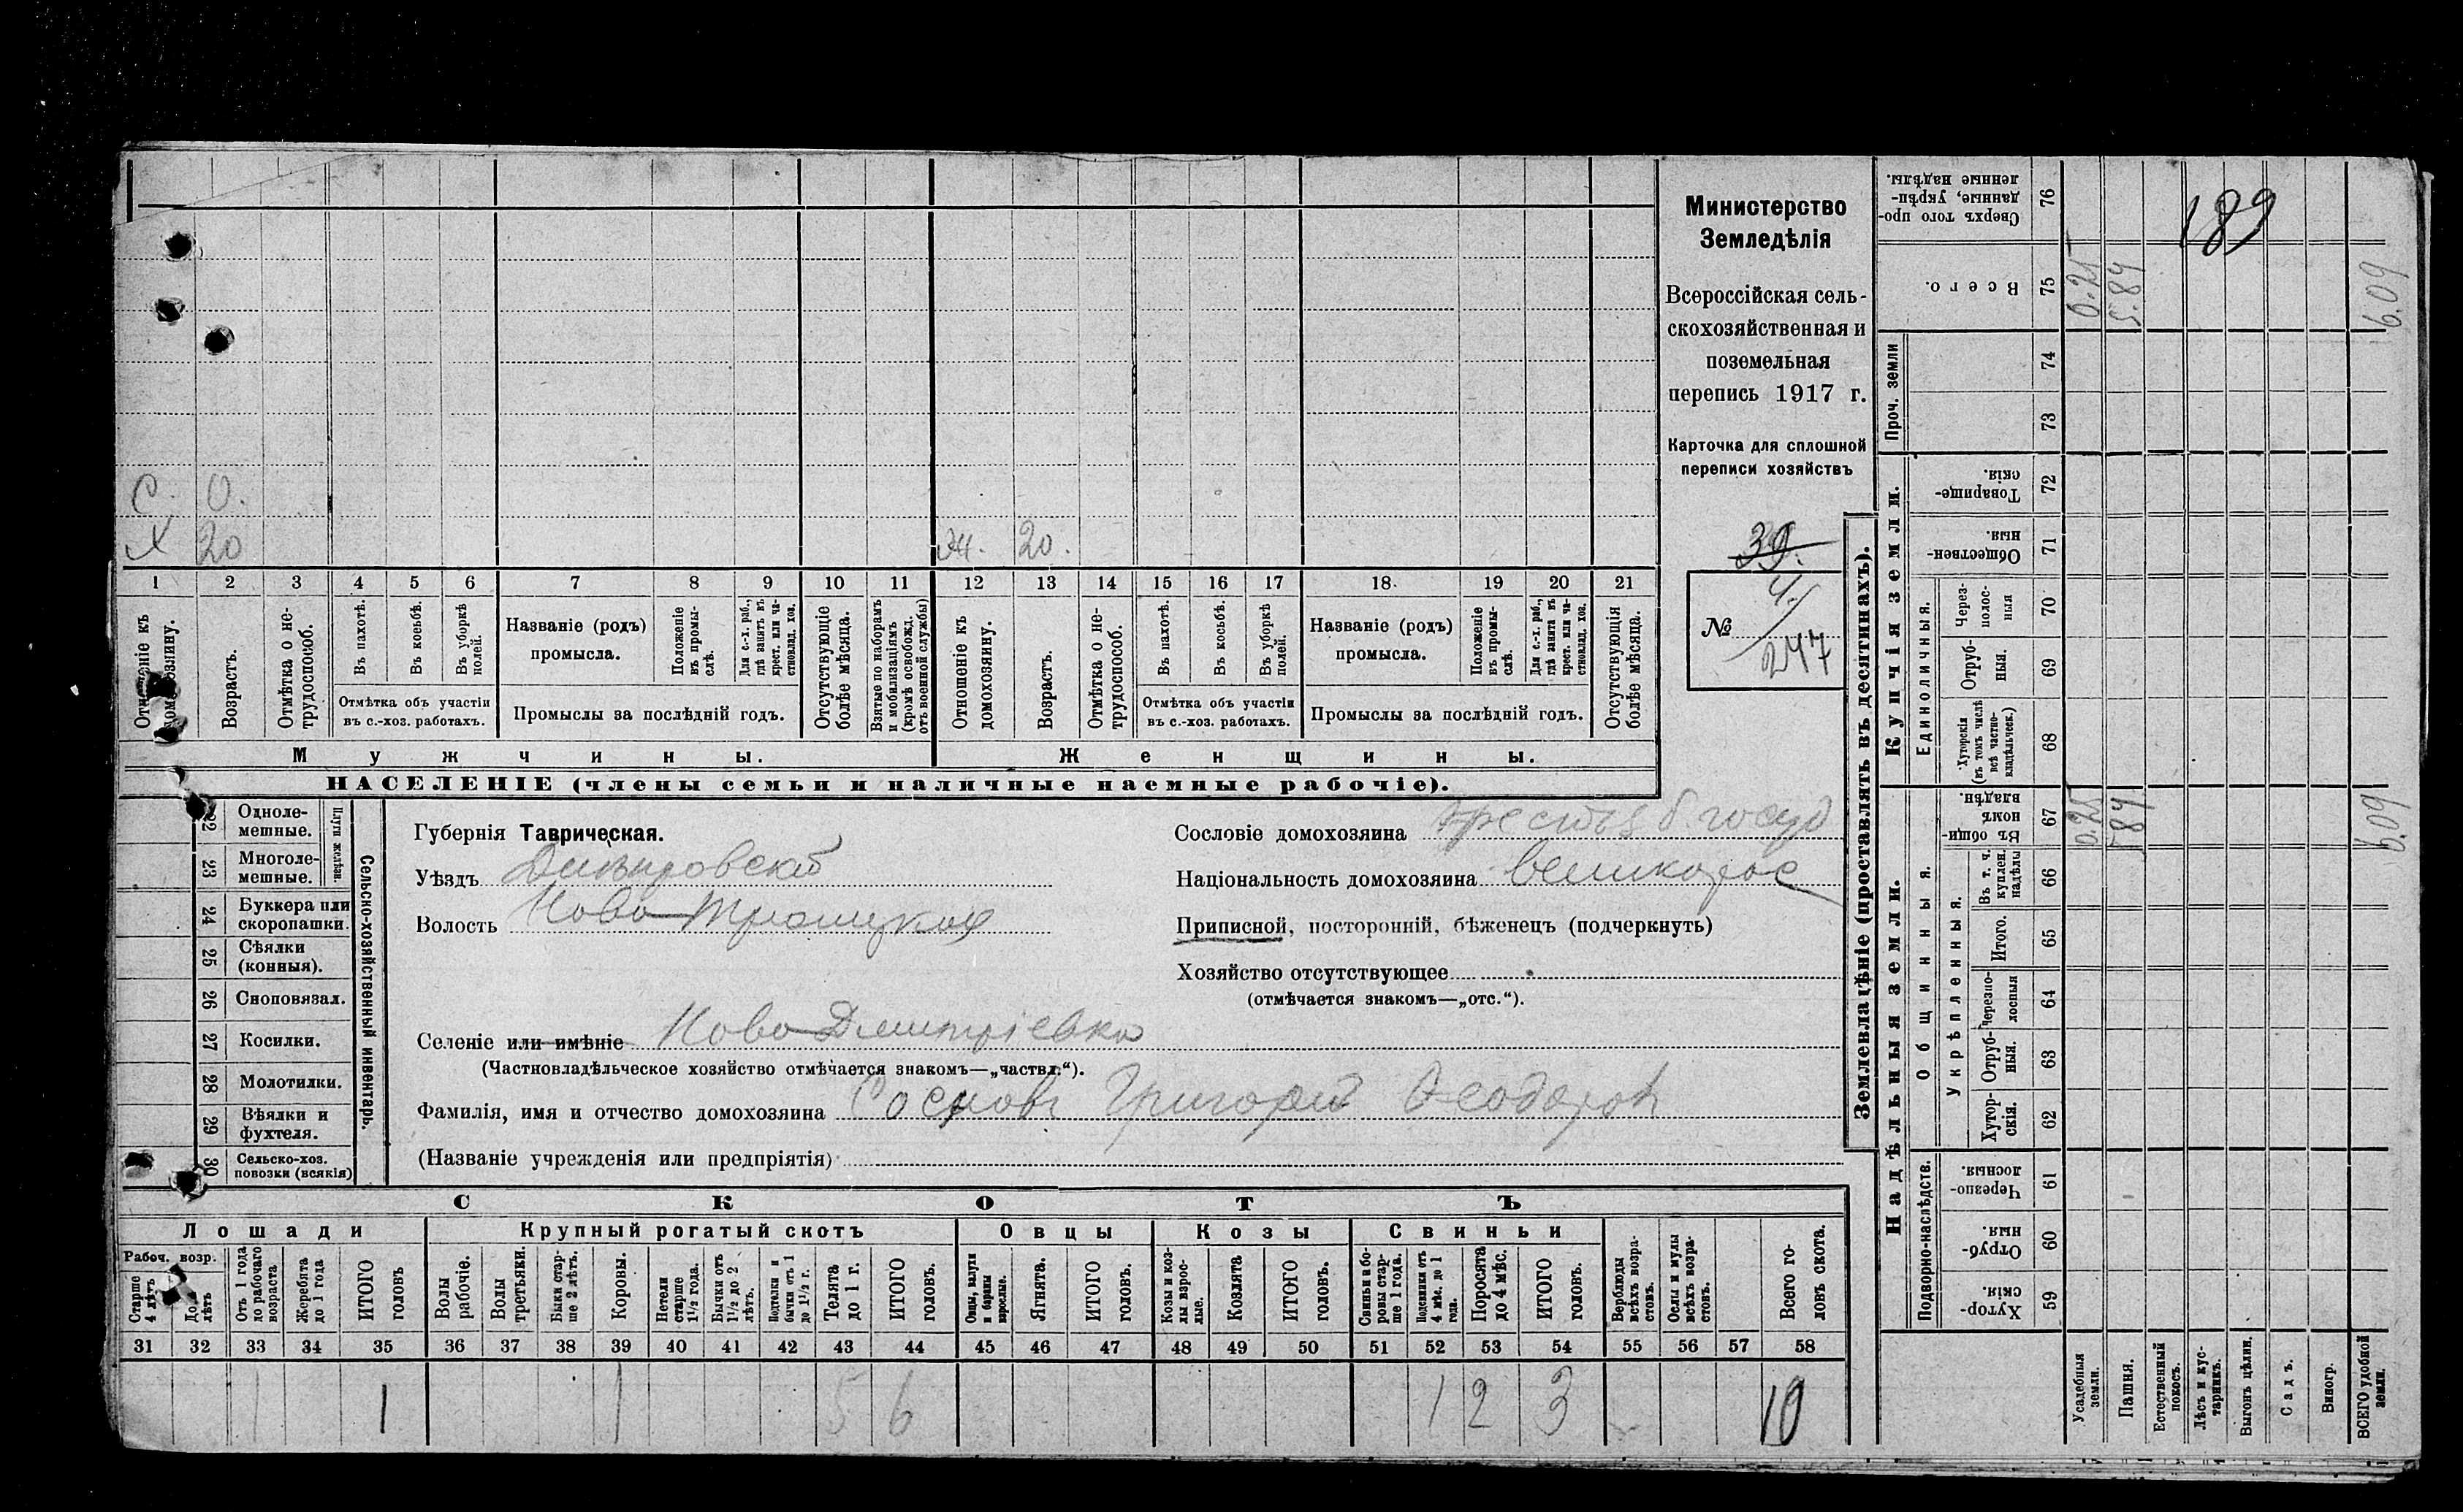 Министерство
Земледѣлія
Всероссійская сель-
скохозяйственная и
поземельная
перепись 1917 г.
Карточка для сплошной
переписи хозяйствъ
39.
№ 4/247
189
С. 0.
Х 20
Ж. 20.
1 2 3 4 5 6 7 8 9 10 11 12 13 14 15 16 17 18 19 20 21
Отношеніе къ домохозяину.
Возрастъ.
Отмѣтка о не-трудоспособ.
Въ пахотѣ.
Въ косьбѣ.
Въ уборкѣ полей.
Отмѣтка объ участіи въ с.-хоз. работахъ.
Названіе (родъ) промысла.
Положеніе въ промы-слѣ.
Для с.-х. раб., гдѣ занятъ въ крест. или ча-стновлад. хоз.
Промыслы за послѣдній годъ.
Отсутствующіе болѣе мѣсяца.
Взятые по наборамъ и мобилизаціямъ (кромѣ освобожд. отъ военной службы)
Отношеніе къ домохозяину.
Возрастъ.
Отмѣтка о не-трудоспособ.
Въ пахотѣ.
Въ косьбѣ.
Въ уборкѣ полей.
Отмѣтка объ участіи въ с.-хоз. работахъ.
Названіе (родъ) промысла.
Положеніе въ промы-слѣ.
Для с.-х. раб., гдѣ занята въ крест. или ча-стновлад. хоз.
Промыслы за послѣдній годъ.
Отсутствующія болѣе мѣсяца.
Мужчины.
Женщины.
НАСЕЛЕНІЕ (члены семьи и наличные наемные рабочіе).
22 Одноле-мешные.
23 Многоле-мешные.
Плуги желѣзн.
24 Буккера или скоропашки.
25 Сѣялки (конныя).
26 Сноповязал.
27 Косилки.
28 Молотилки.
29 Вѣялки и фухтеля.
30 Сельско-хоз. повозки (всякія)
Сельско-хозяйственный инвентарь.
Губернія Таврическая.
Уѣздъ Днѣпровскій
Волость Ново-Троицкая
Сословіе домохозяина
Національность домохозяина великорос
Приписной, посторонній, бѣженецъ (подчеркнуть)
Хозяйство отсутствующее
(отмѣчается знакомъ—„отс.“).
Селеніе или имѣніе Ново-Дмитріевка
(Частновладѣльческое хозяйство отмѣчается знакомъ—„частвл.“).
Фамилія, имя и отчество домохозяина Сосновъ Григорій Ѳеодоров
(Названіе учрежденія или предпріятія)
СКОТЪ
Лошади Крупный рогатый скотъ Овцы Козы Свиньи
Рабоч. возр.
Старше 4 лѣтъ
До 4 лѣтъ
Отъ 1 года до рабочаго возраста
Жеребята до 1 года
ИТОГО головъ
Волы рабочіе.
Волы третьяки.
Быки стар-ше 2 лѣтъ.
Коровы.
Нетели старше 1½ года.
Бычки отъ 1½ до 2 лѣтъ.
Подтелки и бычки отъ 1 до 1½ г.
Телята до 1 г.
ИТОГО головъ.
Овцы, валухи и бараны взрослые.
Ягнята.
ИТОГО головъ.
Козы и коз-лы взрос-лые.
Козлята
ИТОГО головъ.
Свиньи и бо-ровы стар-ше 1 года.
Подсвинки отъ 4 мѣс. до 1 года.
Поросята до 4 мѣс.
ИТОГО головъ.
Верблюды всѣхъ возра-стовъ.
Ослы и мулы всѣхъ возра-стовъ.
Всего го-ловъ скота.
31 32 33 34 35 36 37 38 39 40 41 42 43 44 45 46 47 48 49 50 51 52 53 54 55 56 57 58
1 1 1 5 6 1 2 3 10
Землевладѣніе (проставлять въ десятинахъ).
Сверхъ того про-данные, укрѣп-ленные надѣлы. 76
Всего. 75 0.25 5.84 6.09
Проч. земли 74
73
Купчія земли.
Товарище-скія. 72
Обществен-ныя. 71
Единоличныя.
Через-полос-ныя 70
Отруб-ныя. 69
Хуторскія (въ томъ числѣ всѣ частно-владѣльческ.) 68
Надѣльныя земли.
Общинныя.
Въ общи-номъ владѣн. 67 0.25 5.84 6.09
Укрѣпленныя.
Въ т. ч. куплен. надѣлы 66
Итого. 65
Черезпо-лосныя 64
Отруб-ныя. 63
Хутор-скія. 62
Подворно-наслѣдств.
Черезпо-лосныя. 61
Отруб-ныя. 60
Хутор-скія. 59
Усадебныя земли.
Пашня.
Естественный покосъ.
Лѣсъ и кус-тарникъ.
Выгонъ цѣлин.
Садъ.
Виногр.
ВСЕГО удобной земли.